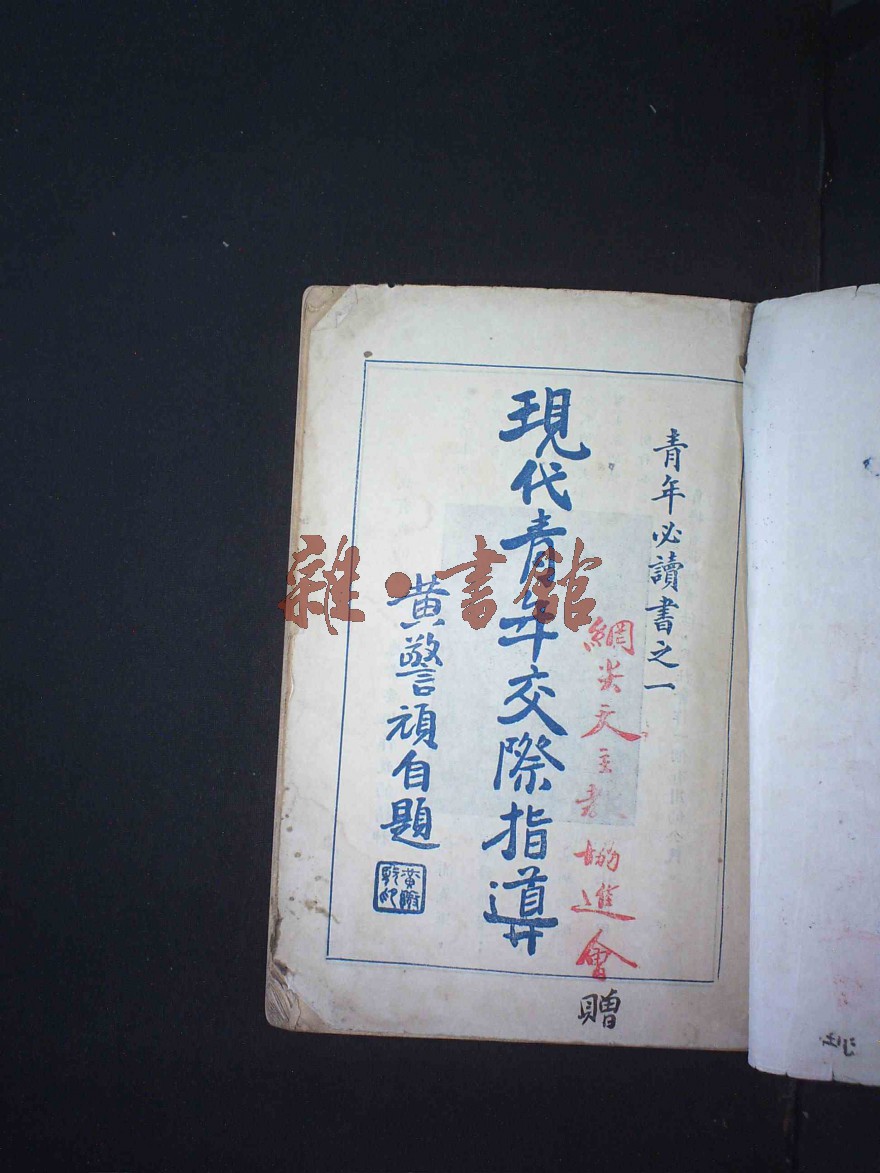 青年必讀書之一
現代青年交際指導
黄警頑自題
協進會
贈
雜·書館